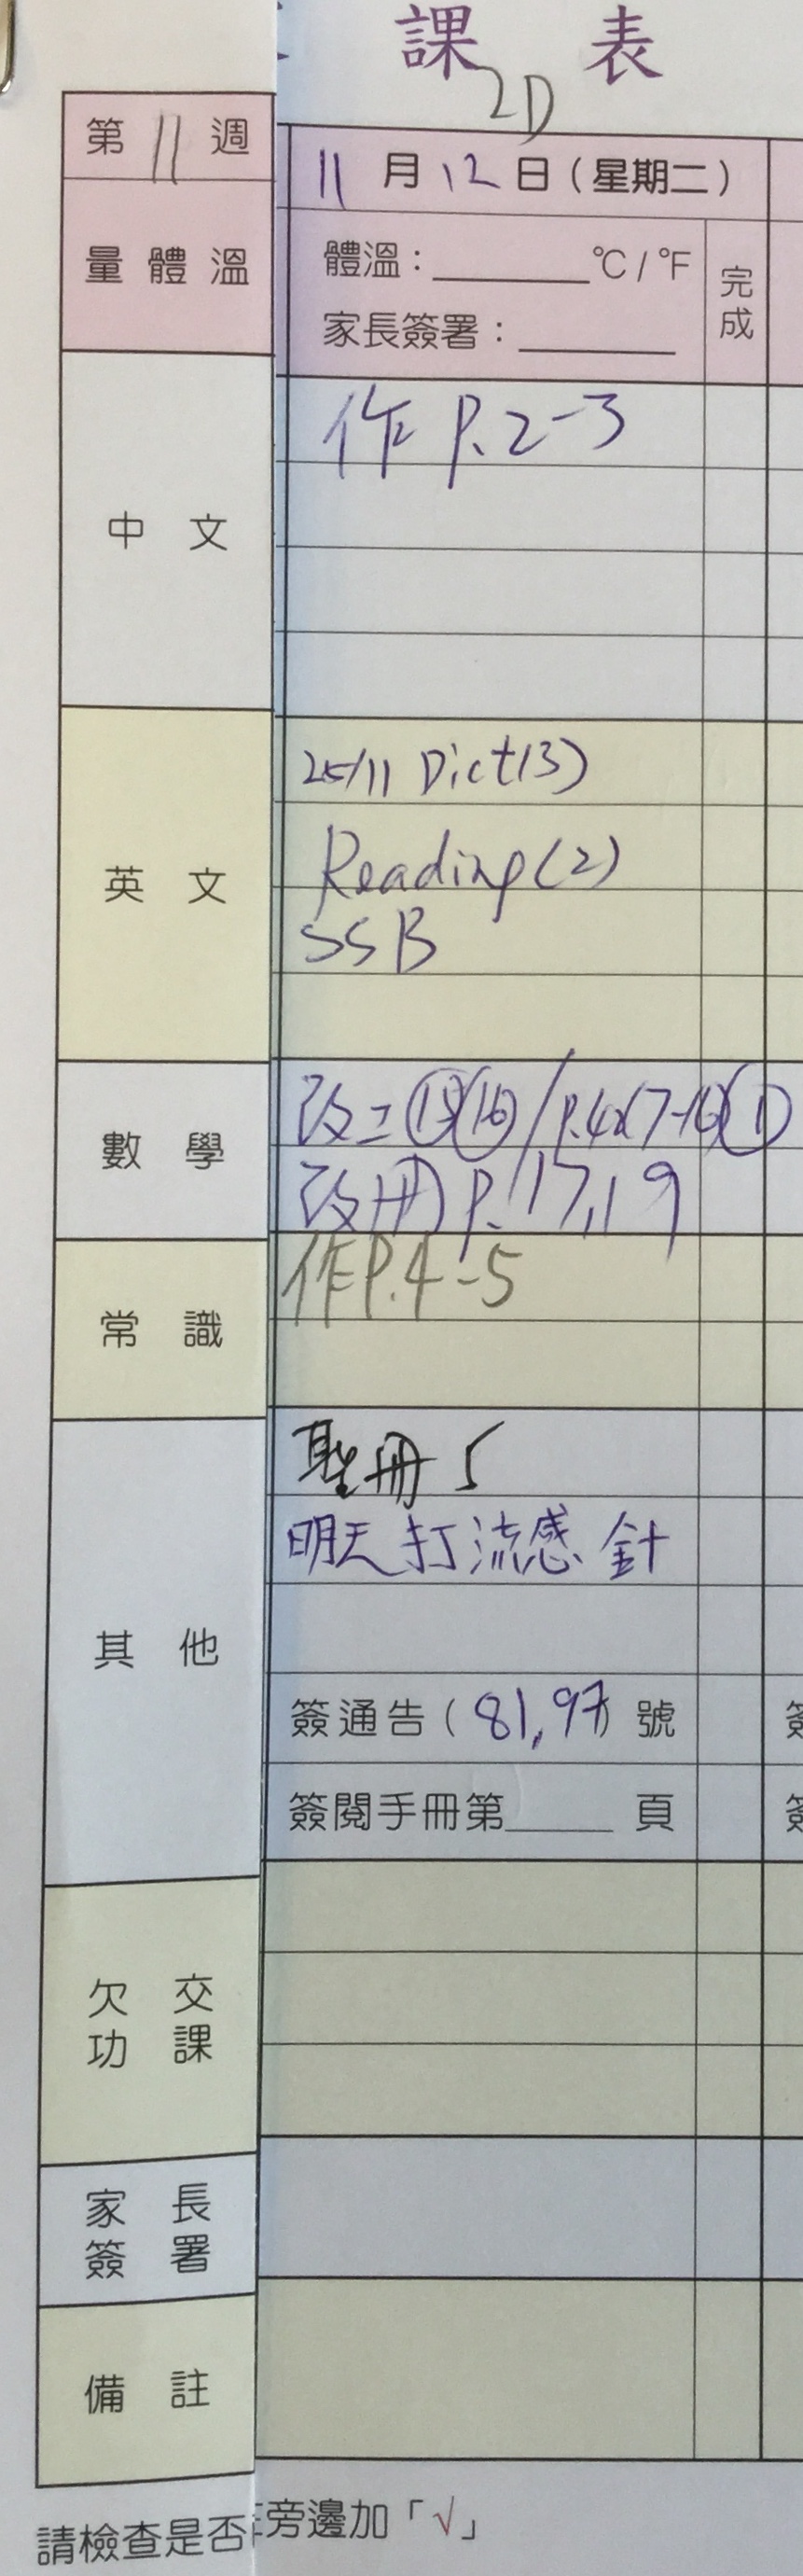 課 表
2D
第 11 週
11 月 12 日(星期二)
量 體 溫
體溫:______℃/℉
完成
家長簽署:______
中 文
作 P.2-3
英 文
25/11 Dict(3)
Reading(2)
SSB
數 學
改二⑮⑯/P.4
改冊 P.17,19
常 識
作P.4-5
其 他
聖冊 5
明天打流感針
簽通告(81,97)號
簽閱手冊第____頁
欠 交
功 課
家 長
簽 署
備 註
請檢查是否
旁邊加「√」